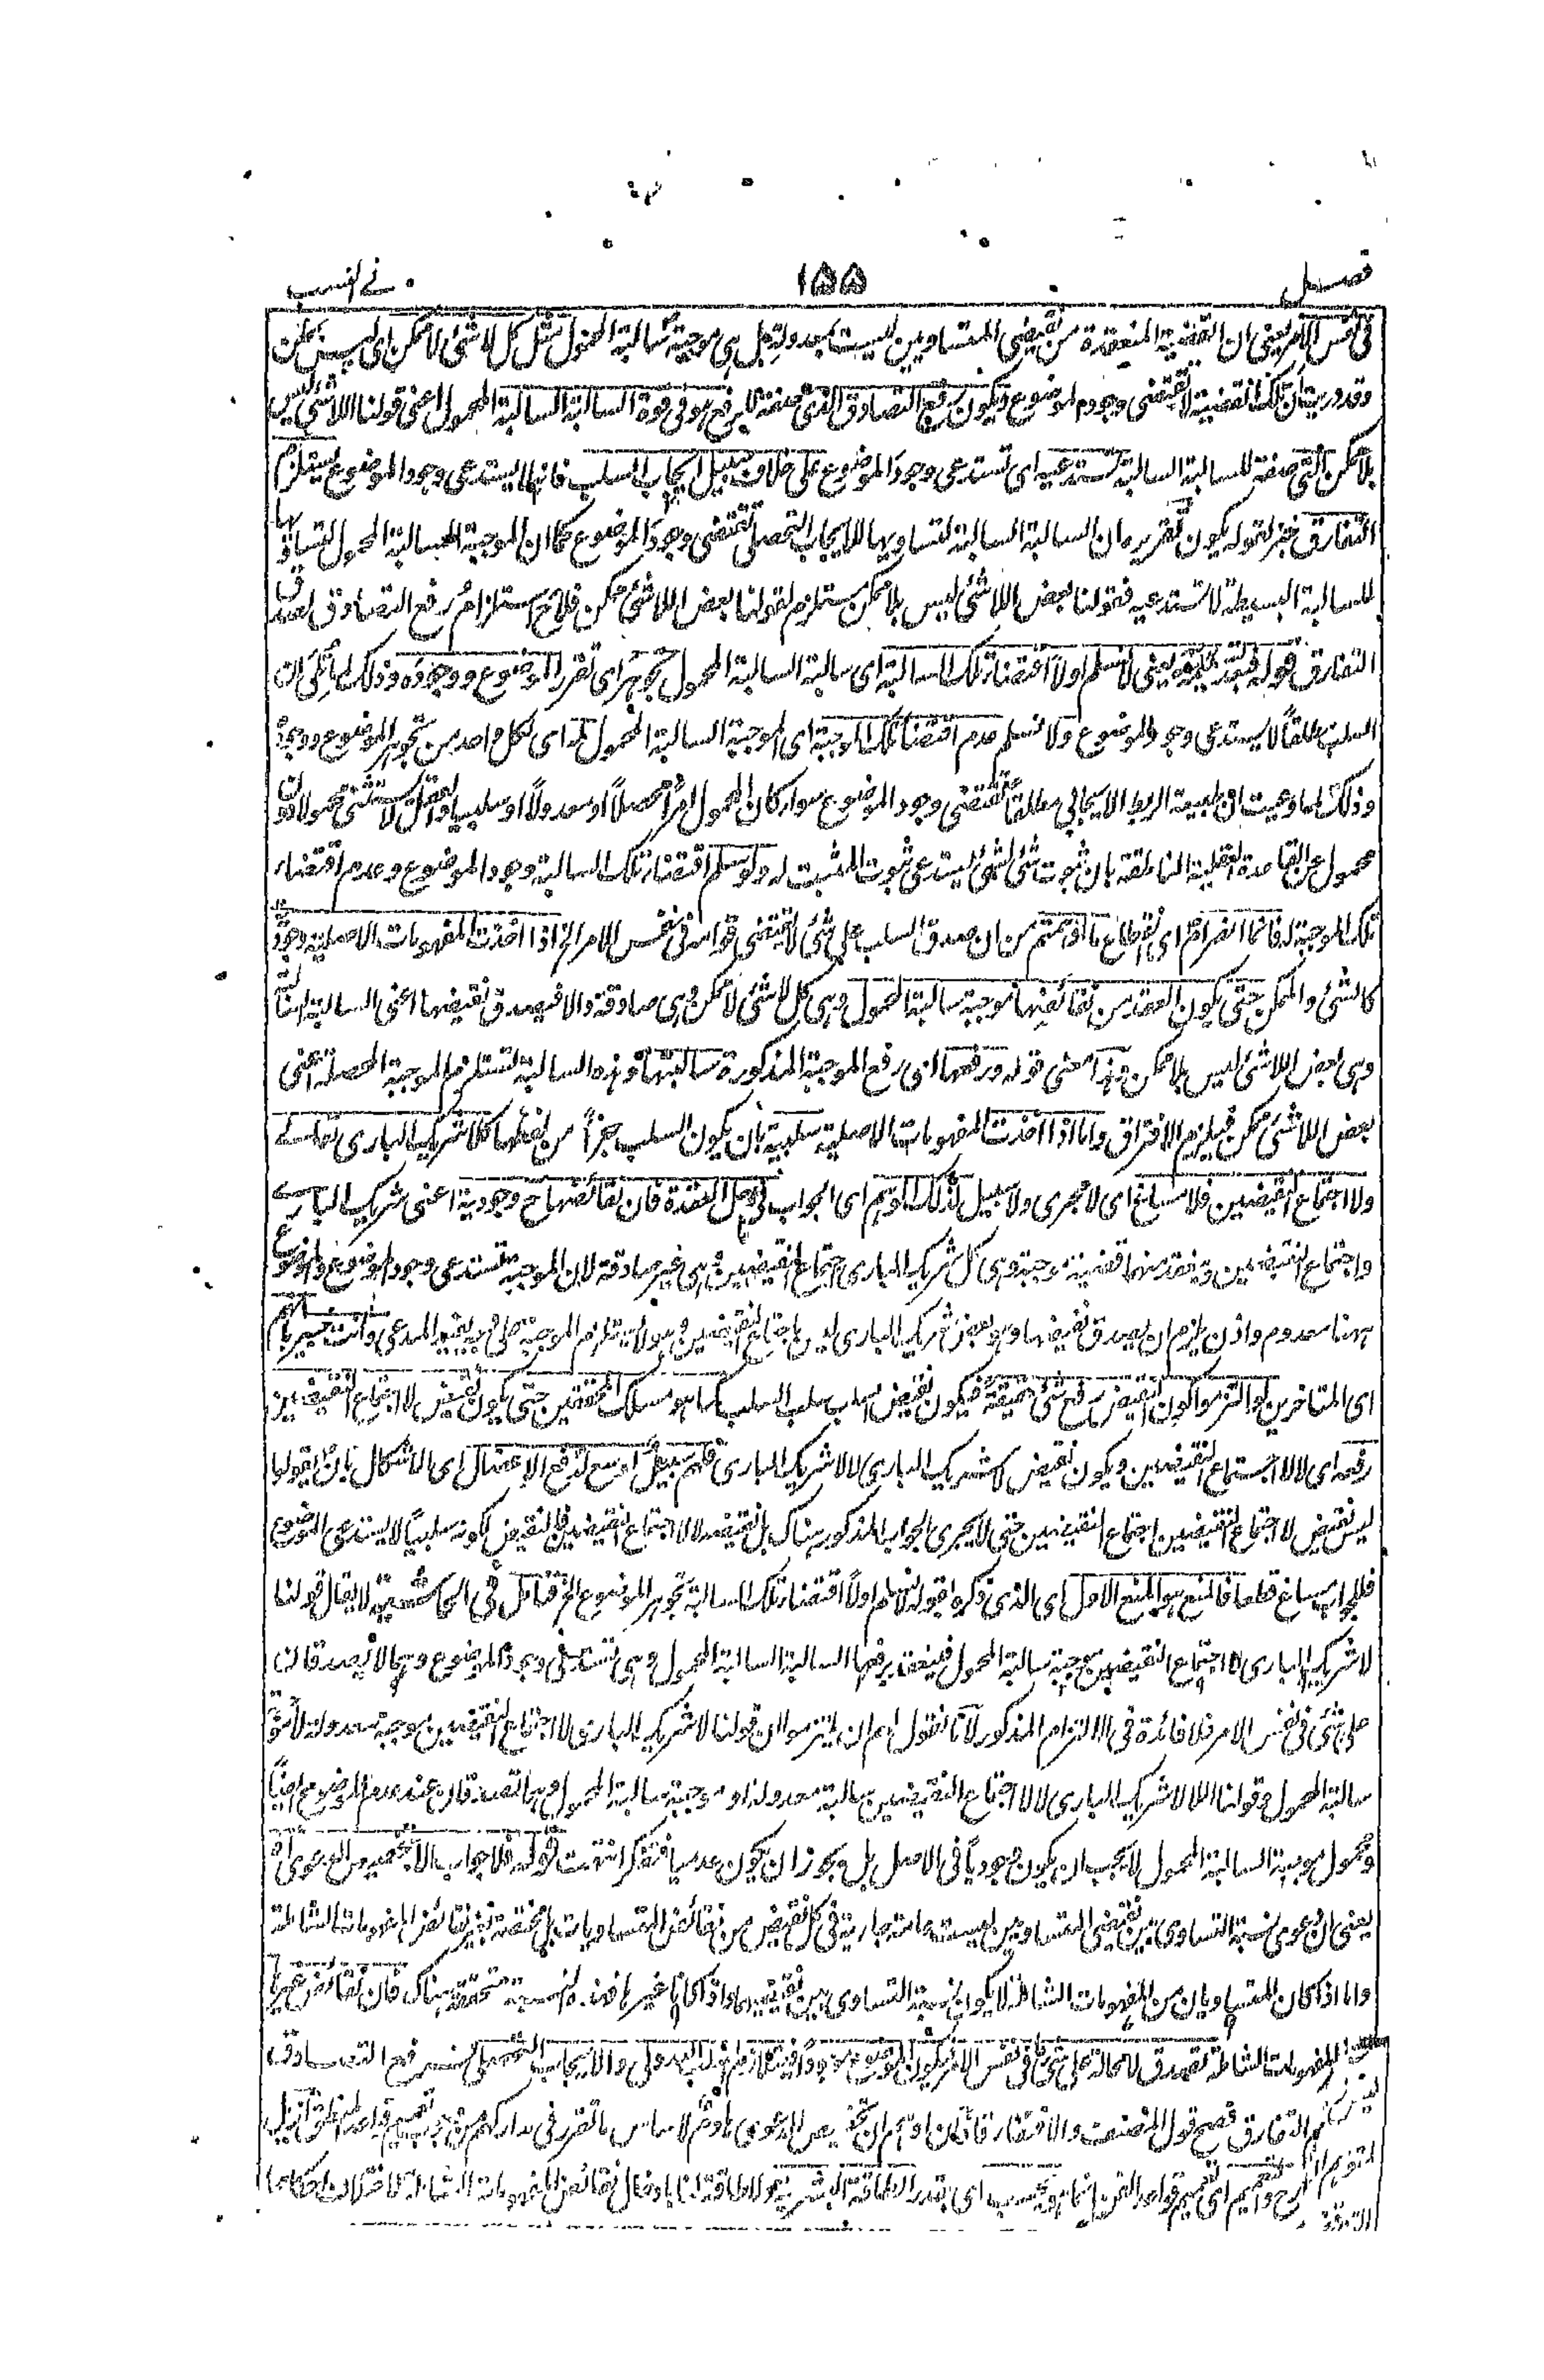 فصل ١٥٥ في النسب
في نفس الامر يعني ان القضية المنعقدة من نقيضي المتساويين ليست بمعدولة بل هي موجبة سالبة المحمول مثل كل لا شئ لا ممكن اي ليس ممكن
وقد دريت ان تلك القضية لا تقتضي وجود الموضوع ويكون رفع التصادق الذي صفته للرفع هو في قوة السالبة السالبة المحمول اعني قولنا اللاشئ ليس
بلا ممكن التي صفة للسالبة السالبة تستدعيه اي تستدعي وجود الموضوع على خلاف سبيل ايجاب السلب فانها لا يستدعي وجود الموضوع يستلزم
التفارق خبر لقوله يكون تقريره ان السالبة السالبة لتساويها للايجاب التحصلي تقتضي وجود الموضوع كما ان الموجبة السالبة المحمول لتساوقها
للسالبة البسيطة لا تستدعيه فقولنا بعض اللاشئ ليس بلا ممكن مستلزم لقولنا بعض اللاشئ ممكن فلاح استلزام رفع التصادق لصدق
التفارق قوله يعني لا نسلم اولا اقتضاء تلك السالبة اي سالبة السالبة المحمول تجوهر اي تقرر الموضوع ووجوده وذلك لما تلي ان
السلب مطلقا لا يستدعي وجود الموضوع ولا نسلم عدم اقتضاء تلك الموجبة اي الموجبة السالبة المحمول له اي لكل واحد من تجوهر الموضوع ووجوده
وذلك لما وعيت ان طبيعة الربط الايجابي مطلقا تقتضي وجود الموضوع سواء كان المحمول امرا محصلا او معدولا او سلبيا والعقل لا يستثني محمولا دون
محمول عن القاعدة العقلية الناطقة بان ثبوت شئ لشئ يستدعي ثبوت المثبت له ولو سلم اقتضاء تلك السالبة وجود الموضوع وعدم اقتضاء
تلك الموجبة له فانما انصرام اي انقطاع ما اوهمتم من ان صدق السلب على شئ لا يقتضي قوامه في نفس الامر الخ اذا اخذت المفهومات الاصلية وجودية
كالشئ والممكن حتى يكون العقد من نقائضها موجبة سالبة المحمول وهي كل لاشئ لا ممكن وهي صادقة والا فيصدق نقيضها اعني السالبة السالبة
وهي بعض اللاشئ ليس بلا ممكن وهذا معنى قوله ورفعها اي رفع الموجبة المذكورة سالبتها وهذه السالبة تستلزم الموجبة المحصلة اعني
بعض اللاشئ ممكن فيلزم الافتراق واما اذا اخذت المفهومات الاصلية سلبية بان يكون السلب جزأ من لفظها كلا شريك الباري تعالى
ولا اجتماع النقيضين فلا مساغ اي لا مجرى ولا سبيل لذلك الوهم اي الجواب في حل العقدة فان نقائضها ح وجودية اعني شريك الباري
واجتماع النقيضين وينعقد منهما قضية موجبة وهي كل شريك الباري اجتماع النقيضين وهي غير صادقة لان الموجبة تستدعي وجود الموضوع والموضوع
ههنا معدوم واذن يلزم ان يصدق نقيضها وهو بعض شريك الباري ليس باجتماع النقيضين وهو لا يستلزم الموجبة وانت خبير بانهم
اي المتاخرين لو التزموا كون النقيض رفع شئ حقيقة فيكون نقيض السلب سلب السلب كما هو مسلك المحققين حتى يكون نقيض لا اجتماع النقيضين
رفعه اي لا لا اجتماع النقيضين ويكون نقيض لا شريك الباري لا لا شريك الباري فلهم سبيل اوسع لدفع الاعضال اي الاشكال بان يقولوا
ليس نقيض لا اجتماع النقيضين اجتماع النقيضين حتى لا يجري الجواب المذكور هناك بل نقيضه لا لا اجتماع النقيضين فالنقيض لكونه سلبيا لا يستدعي الموضوع
فللجواب مساغ قطعا فالمنع هو المنع الاول اي الذي ذكره بقوله لا نسلم اولا اقتضاء تلك السالبة تجوهر الموضوع الخ فتامل في الحاشية لا يقال قولنا
لا شريك الباري لا اجتماع النقيضين موجبة سالبة المحمول فينعقد برفعها السالبة السالبة المحمول وهي تستدعي وجود الموضوع وهما لا يصدقان
على شئ في نفس الامر فلا فائدة في الالتزام المذكور لانا نقول لهم ان يلتزموا ان قولنا لا شريك الباري لا اجتماع النقيضين موجبة معدولة لا موجبة
سالبة المحمول وقولنا اللا لا شريك الباري لا لا اجتماع النقيضين سالبة معدولة او موجبة سالبة المحمول وهما تصدقان عند عدم الموضوع ايضا
ومحمول موجبة السالبة المحمول لا يجب ان يكون وجوديا في الاصل بل ويجوز ان يكون عدميا فتفكر انتهت قوله فلا جواب الا بتخصيص الدعوى اه
يعني ان دعوى نسبة التساوي بين نقيضي المتساويين ليست عامة جارية في كل نقيض من نقائض المتساويات بل مختصة بغير نقائض المفهومات الشاملة
واما اذا كان المتساويان من المفهومات الشاملة لا يكون نسبة التساوي بين نقيضيهما واذا كانا غيرها فهذه النسبة متحققة هناك فان نقائض غير
المفهومات الشاملة تصدق لا محالة على شئ ما في نفس الامر فيكون الموضوع موجودا فيتلازم السلب العدولي والايجاب التحصلي رفع التصادق
التفارق فصح قول المصنف والافتقار فان اوهم ان تخصيص الدعوى هادم لاساس ما تقرر في مداركهم من وجوب تعميم قواعد المنطق ازيل
وتعميم اي تعميم قواعد الفن انما هو بحسب اي بقدر الطاقة البشرية ولا طاقة لنا بادخال نقائض المفهومات الشاملة لاختلاف احكامها